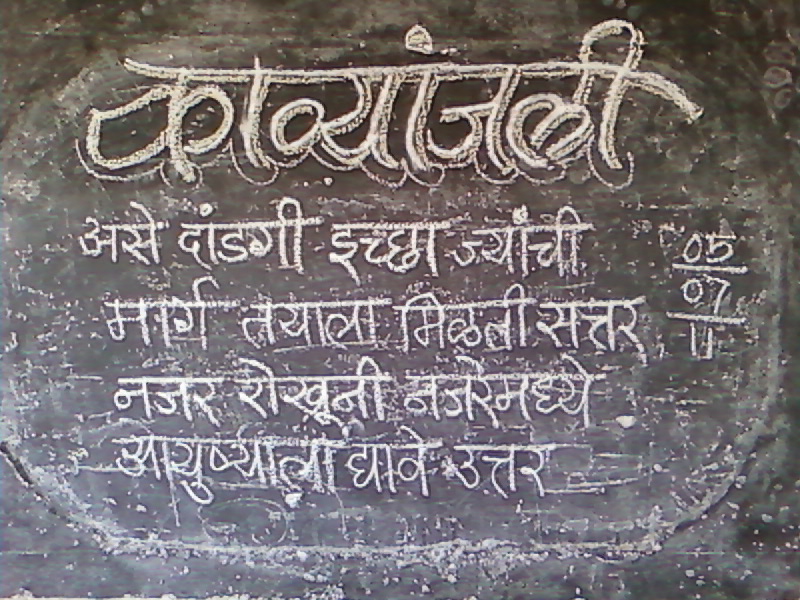 काव्यांजली
असे दांडगी इच्छा ज्यांची
मार्ग तयाला मिळती सत्तर
नजर रोखूनी नजरेमध्ये
आयुष्याला द्यावे उत्तर
05
07
11